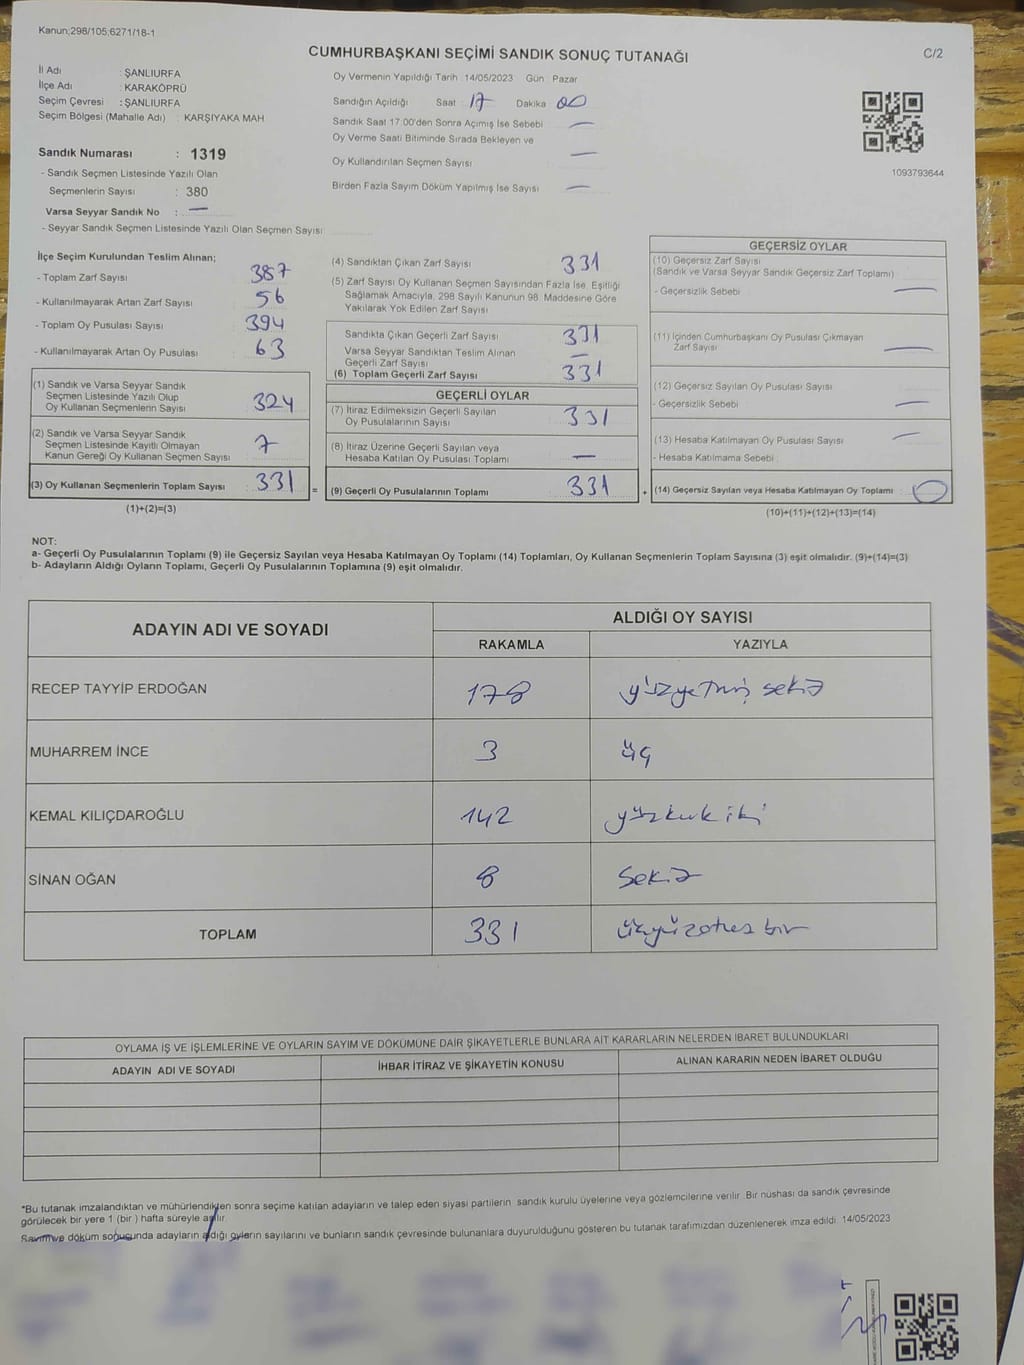 Kanun;298/105;6271/18-1
CUMHURBAŞKANI SEÇİMİ SANDIK SONUÇ TUTANAĞI
C/2
İl Adı : ŞANLIURFA
İlçe Adı : KARAKÖPRÜ
Seçim Çevresi : ŞANLIURFA
Seçim Bölgesi (Mahalle Adı) : KARŞIYAKA MAH
Sandık Numarası : 1319
- Sandık Seçmen Listesinde Yazılı Olan
Seçmenlerin Sayısı : 380
Varsa Seyyar Sandık No : —
- Seyyar Sandık Seçmen Listesinde Yazılı Olan Seçmen Sayısı :
Oy Vermenin Yapıldığı Tarih 14/05/2023 Gün Pazar
Sandığın Açıldığı Saat 17 Dakika 00
Sandık Saat 17:00'den Sonra Açımış İse Sebebi —
Oy Verme Saati Bitiminde Sırada Bekleyen ve
Oy Kullandırılan Seçmen Sayısı —
Birden Fazla Sayım Döküm Yapılmış İse Sayısı —
1093793644
İlçe Seçim Kurulundan Teslim Alınan;
- Toplam Zarf Sayısı 387
- Kullanılmayarak Artan Zarf Sayısı 56
- Toplam Oy Pusulası Sayısı 394
- Kullanılmayarak Artan Oy Pusulası 63
(1) Sandık ve Varsa Seyyar Sandık
Seçmen Listesinde Yazılı Olup
Oy Kullanan Seçmenlerin Sayısı 324
(2) Sandık ve Varsa Seyyar Sandık
Seçmen Listesinde Kayıtlı Olmayan
Kanun Gereği Oy Kullanan Seçmen Sayısı 7
(3) Oy Kullanan Seçmenlerin Toplam Sayısı 331 =
(1)+(2)=(3)
(4) Sandıktan Çıkan Zarf Sayısı 331
(5) Zarf Sayısı Oy Kullanan Seçmen Sayısından Fazla İse, Eşitliği
Sağlamak Amacıyla, 298 Sayılı Kanunun 98. Maddesine Göre
Yakılarak Yok Edilen Zarf Sayısı
Sandıkta Çıkan Geçerli Zarf Sayısı 331
Varsa Seyyar Sandıktan Teslim Alınan
Geçerli Zarf Sayısı —
(6) Toplam Geçerli Zarf Sayısı 331
GEÇERLİ OYLAR
(7) İtiraz Edilmeksizin Geçerli Sayılan
Oy Pusulalarının Sayısı 331
(8) İtiraz Üzerine Geçerli Sayılan veya
Hesaba Katılan Oy Pusulası Toplamı —
(9) Geçerli Oy Pusulalarının Toplamı 331 +
GEÇERSİZ OYLAR
(10) Geçersiz Zarf Sayısı
(Sandık ve Varsa Seyyar Sandık Geçersiz Zarf Toplamı)
- Geçersizlik Sebebi —
(11) İçinden Cumhurbaşkanı Oy Pusulası Çıkmayan
Zarf Sayısı —
(12) Geçersiz Sayılan Oy Pusulası Sayısı
- Geçersizlik Sebebi —
(13) Hesaba Katılmayan Oy Pusulası Sayısı —
- Hesaba Katılmama Sebebi
(14) Geçersiz Sayılan veya Hesaba Katılmayan Oy Toplamı : 0
(10)+(11)+(12)+(13)=(14)
NOT:
a- Geçerli Oy Pusulalarının Toplamı (9) ile Geçersiz Sayılan veya Hesaba Katılmayan Oy Toplamı (14) Toplamları, Oy Kullanan Seçmenlerin Toplam Sayısına (3) eşit olmalıdır. (9)+(14)=(3)
b- Adayların Aldığı Oyların Toplamı, Geçerli Oy Pusulalarının Toplamına (9) eşit olmalıdır.
ADAYIN ADI VE SOYADI ALDIĞI OY SAYISI
RAKAMLA YAZIYLA
RECEP TAYYİP ERDOĞAN 178 yüzyetmiş sekiz
MUHARREM İNCE 3 üç
KEMAL KILIÇDAROĞLU 142 yüzkırk iki
SİNAN OĞAN 8 Sekiz
TOPLAM 331 üçyüzotuz bir
OYLAMA İŞ VE İŞLEMLERİNE VE OYLARIN SAYIM VE DÖKÜMÜNE DAİR ŞİKAYETLERLE BUNLARA AİT KARARLARIN NELERDEN İBARET BULUNDUKLARI
ADAYIN ADI VE SOYADI İHBAR İTİRAZ VE ŞİKAYETİN KONUSU ALINAN KARARIN NEDEN İBARET OLDUĞU
*Bu tutanak imzalandıktan ve mühürlendikten sonra seçime katılan adayların ve talep eden siyasi partilerin sandık kurulu üyelerine veya gözlemcilerine verilir. Bir nüshası da sandık çevresinde
görülecek bir yere 1 (bir ) hafta süreyle asılır.
Sayım ve döküm sonucunda adayların aldığı oyların sayılarını ve bunların sandık çevresinde bulunanlara duyurulduğunu gösteren bu tutanak tarafımızdan düzenlenerek imza edildi. 14/05/2023